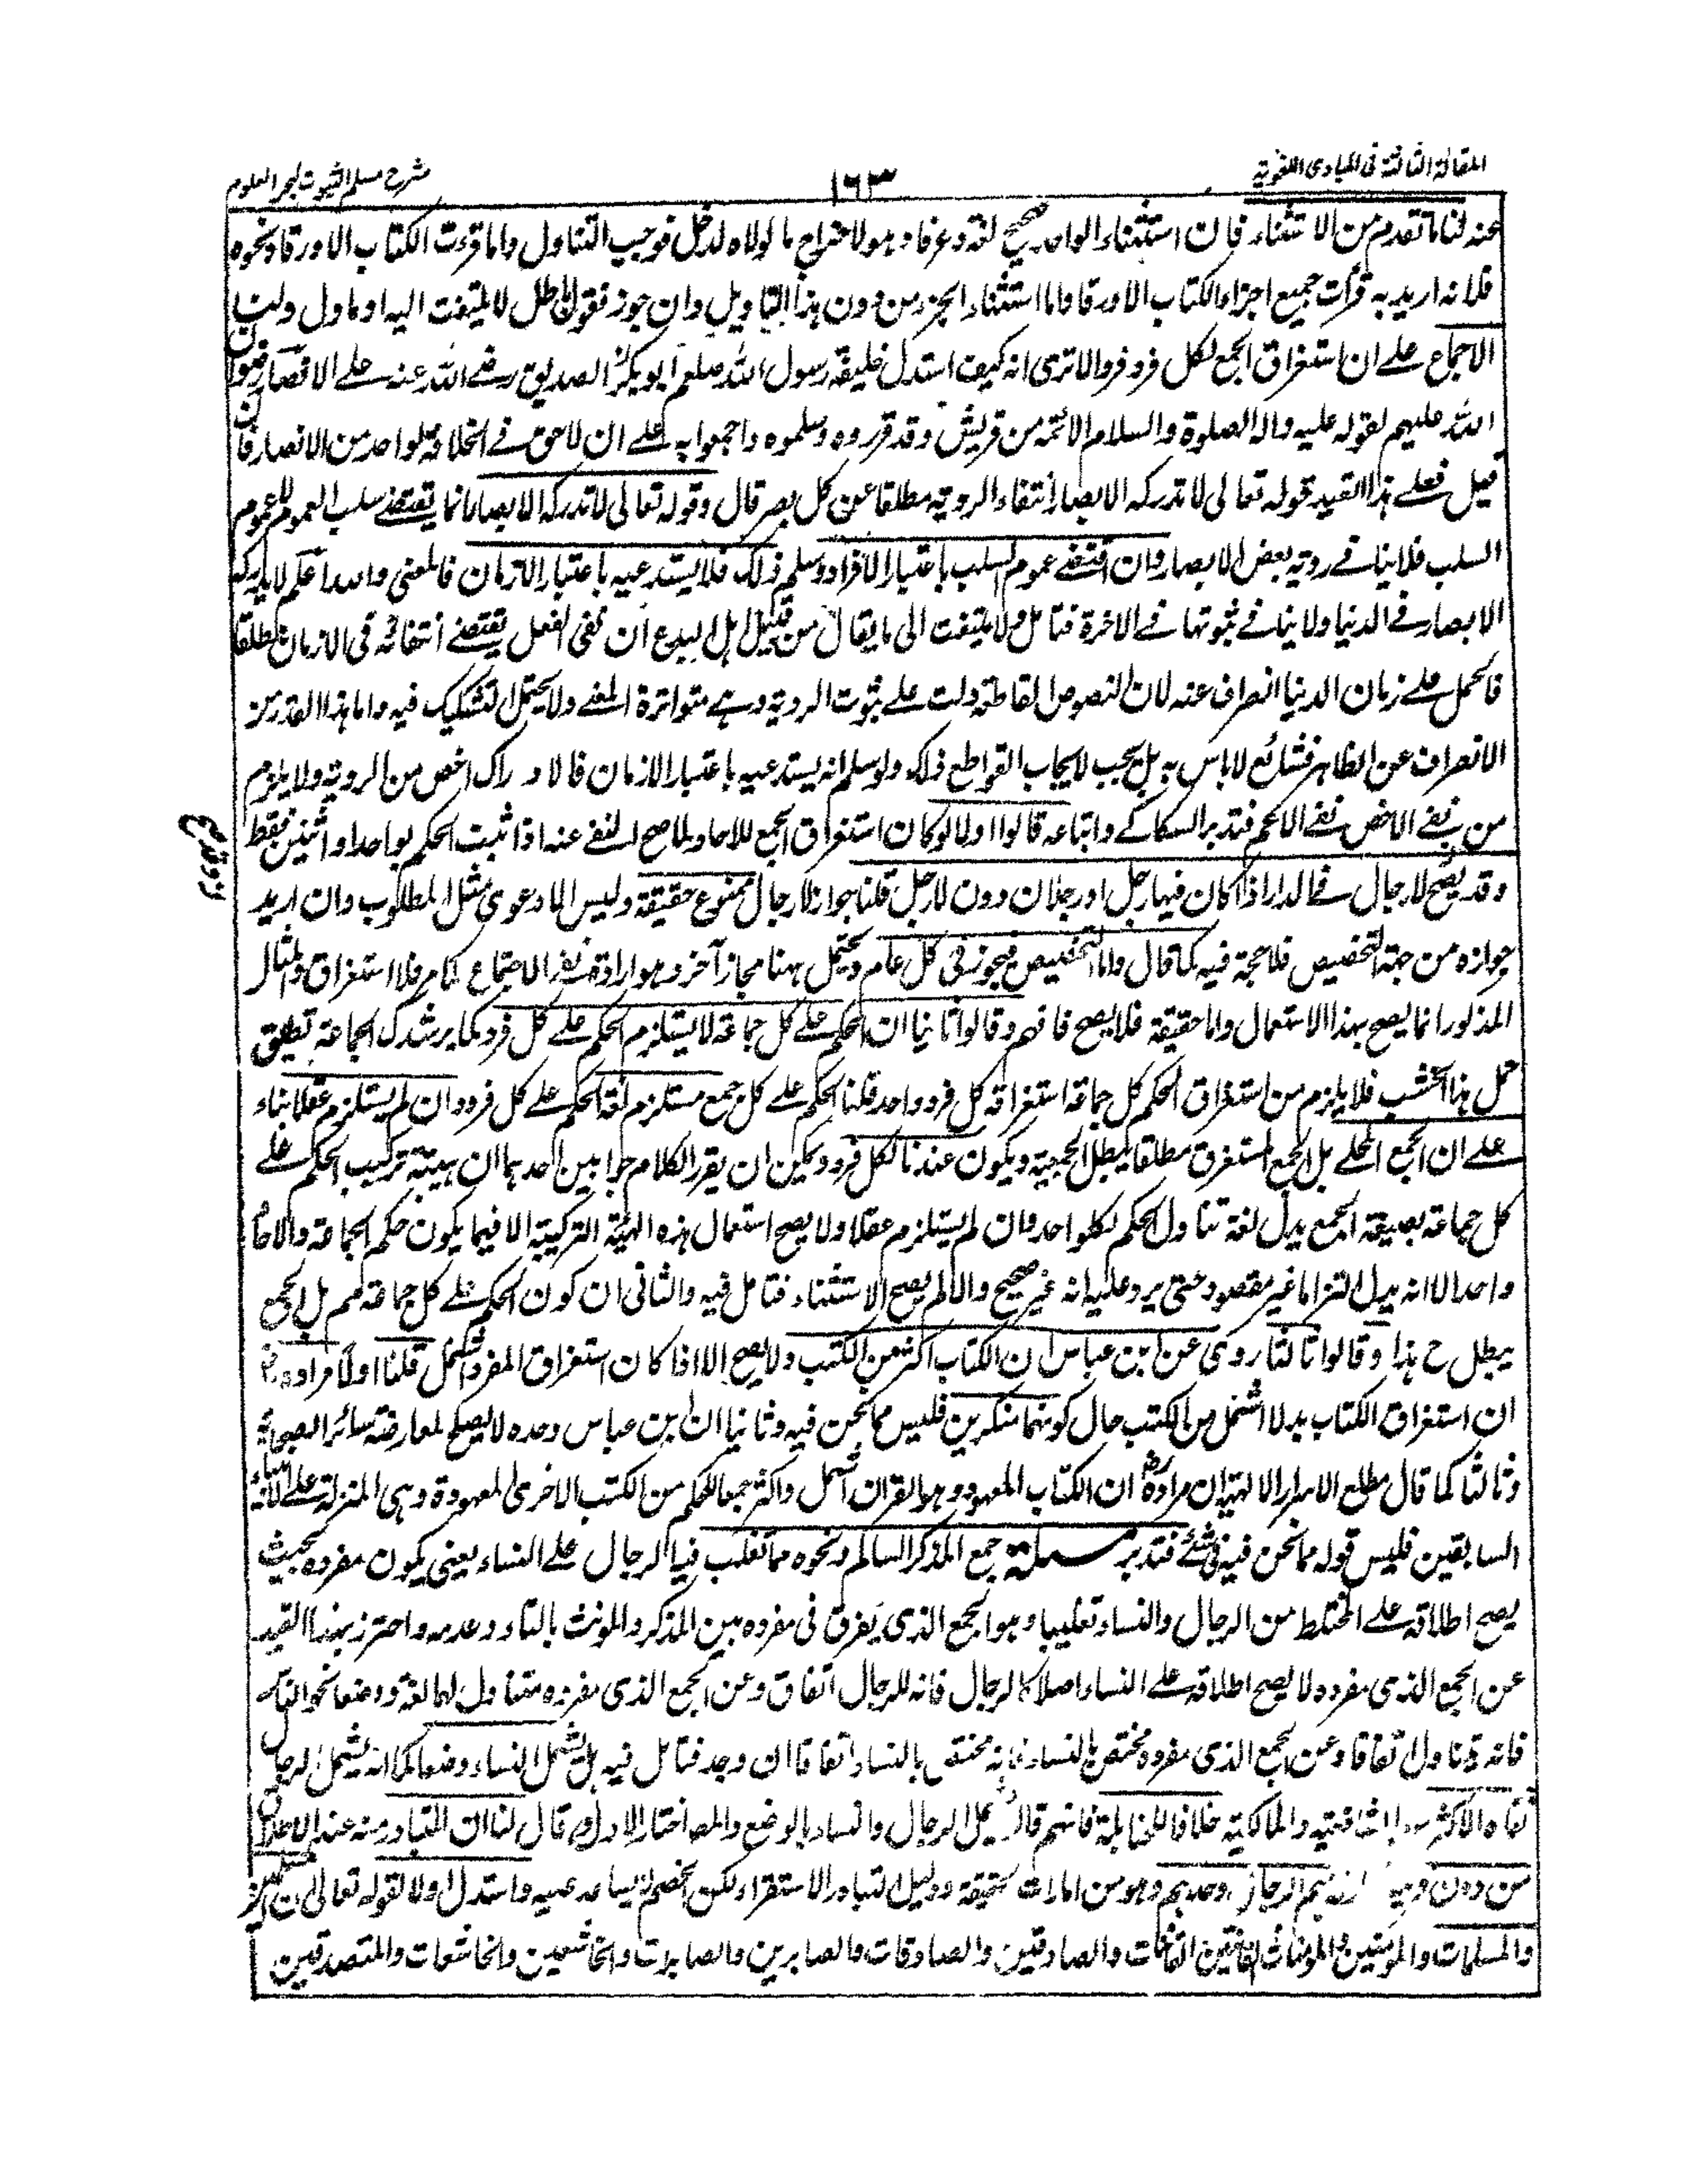 المقالة الثالثة فى المبادى اللغوية
١٦٣
شرح مسلم الثبوت لبحر العلوم
عنه لنا ما تقدم من الاستثناء فان استثناء الواحد صحيح لغة وعرفا وهو لاخراج ما لولاه لدخل فوجب التناول واما قرءت الكتاب الا ورقا ونحوه
فلانه اريد به قرأت جميع اجزاء الكتاب الا ورقا واما استثناء الجزء من دون هذا التاويل وان جوز فقول باطل لا يلتفت اليه او ماول ولنا
الاجماع على ان استغراق الجمع لكل فرد فرد الا ترى انه كيف استدل خليفة رسول الله صلعم ابو بكر الصديق رضى الله عنه على الانصار رضوان
الله عليهم لقوله عليه واله الصلوة والسلام الائمة من قريش وقد قرروه وسلموه واجمعوا به على ان لا حق فى الخلافة لواحد من الانصار فان
قيل فعلى هذا القيد قوله تعالى لا تدركه الابصار انتفاء الروية مطلقا عن كل بصر قال وقوله تعالى لا تدركه الابصار انما يقتضى سلب العموم لا عموم
السلب فلا ينافى روية بعض الابصار وان اقتضى عموم السلب باعتبار الافراد وسلم ذلك فلا يستدعيه باعتبار الازمان فالمعنى والله اعلم لا يدركه
الابصار فى الدنيا ولا ينافى ثبوتها فى الاخرة فتامل ولا يلتفت الى ما يقال من قبيل اهل البدع ان نفى الفعل يقتضى انتفائه فى الازمان مطلقا
فالحمل على زمان الدنيا انصراف عنه لان النصوص القاطعة دلت على ثبوت الروية وهى متواترة المعنى ولا يحتمل التشكيك فيه واما هذا القدر من
الانصراف عن الظاهر فشائع لا باس به بل يجب لايجاب القواطع ذلك ولو سلم انه يستدعيه باعتبار الازمان فالادراك اخص من الروية ولا يلزم
من نفى الاخص نفى الاعم فتدبر السكاكى واتباعه قالوا اولا لو كان استغراق الجمع للاحاد لما صح النفى عنه اذا ثبت الحكم بواحد او اثنين فقط
وقد يصح لا رجال فى الدار اذا كان فيها رجل او رجلان دون لا رجل قلنا جواز لا رجال ممنوع حقيقة وليس الا دعوى مثل المطلوب وان اريد
جوازه من جهة التخصيص فلا حجة فيه كما قال واما التخصيص فيجوز فى كل عام ويحتمل ههنا مجاز آخر وهو ارادة نفى الاجتماع كما مر فلا استغراق والمثال
المذكور انما يصح بهذا الاستعمال واما حقيقة فلا يصح فافهم وقالوا ثانيا ان الحكم على كل جماعة لا يستلزم الحكم على كل فرد كما يرشدك الجماعة تطيق
حمل هذا الخشب فلا يلزم من استغراق الحكم كل جماعة استغراقه كل فرد واحد قلنا الحكم على كل جمع مستلزم لغة الحكم على كل فرد وان لم يستلزم عقلا بناء
على ان الجمع المحلى بل الجمع المستغرق مطلقا يبطل الجمعية ويكون عندنا لكل فرد ويمكن ان يقرر الكلام جوابين احدهما ان هيئة تركيب الحكم على
كل جماعة بصيغة الجمع يدل لغة تناول الحكم لكل واحد وان لم يستلزم عقلا ولا يصح استعمال هذه الهيئة التركيبية الا فيما يكون حكم الجماعة والاحاد
واحدا لا انه يدل التزاما غير مقصود حتى يرد عليه انه غير صحيح والا لم يصح الاستثناء فتامل فيه والثانى ان كون الحكم على كل جماعة لم بل الجمع
يبطل ح هذا وقالوا ثالثا روى عن ابن عباس ان الكتاب اكثر من الكتب ولا يصح الا اذا كان استغراق المفرد اشمل قلنا اولا مراده
ان استغراق الكتاب بدلا اشمل من الكتب حال كونهما منكرين فليس مما نحن فيه وثانيا ان ابن عباس وحده لا يصلح لمعارضة سائر الصحابة
وثالثا كما قال مطلع الاسرار الالهية ان مراده ان الكتاب المعهود وهو القران اشمل واكثر جمعا للحكم من الكتب الاخرى المعهودة وهى المنزلة على الانبياء
السابقين فليس قوله مما نحن فيه فى شئ فتدبر مسئلة جمع المذكر السالم ونحوه مما تغلب فيه الرجال على النساء يعنى يكون مفرده بحيث
يصح اطلاقه على المختلط من الرجال والنساء تغليبا وهو الجمع الذى يفرق فى مفرده بين المذكر والمونث بالتاء وعدمه واحترز بهذا القيد
عن الجمع الذى مفرده لا يصح اطلاقه على النساء اصلا كالرجال فانه للرجال اتفاق وعن الجمع الذى مفرده متناول لهما لغة ووضعا نحو الناس
فانه يتناول اتفاقا وعن الجمع الذى مفرده مختص بالنساء فانه مختص بالنساء اتفاقا ان وجد فتامل فيه بل يشمل النساء وضعا كما انه يشمل الرجال
نفاه الاكثر الشافعية والمالكية خلافا للحنابلة فانهم قالوا يشمل الرجال والنساء بالوضع والمص اختار الاول وقال لنا ان المتبادر منه عند الاطلاق
من دون قرينة الرجال وحدهم وهو من امارات الحقيقة ودليل التبادر الاستقراء لكن الخصم لا يساعد عليه واستدل اولا لقوله تعالى ان المسلمين
والمسلمات والمؤمنين والمؤمنات القانتين القانتات والصادقين والصادقات والصابرين والصابرات والخاشعين والخاشعات والمتصدقين